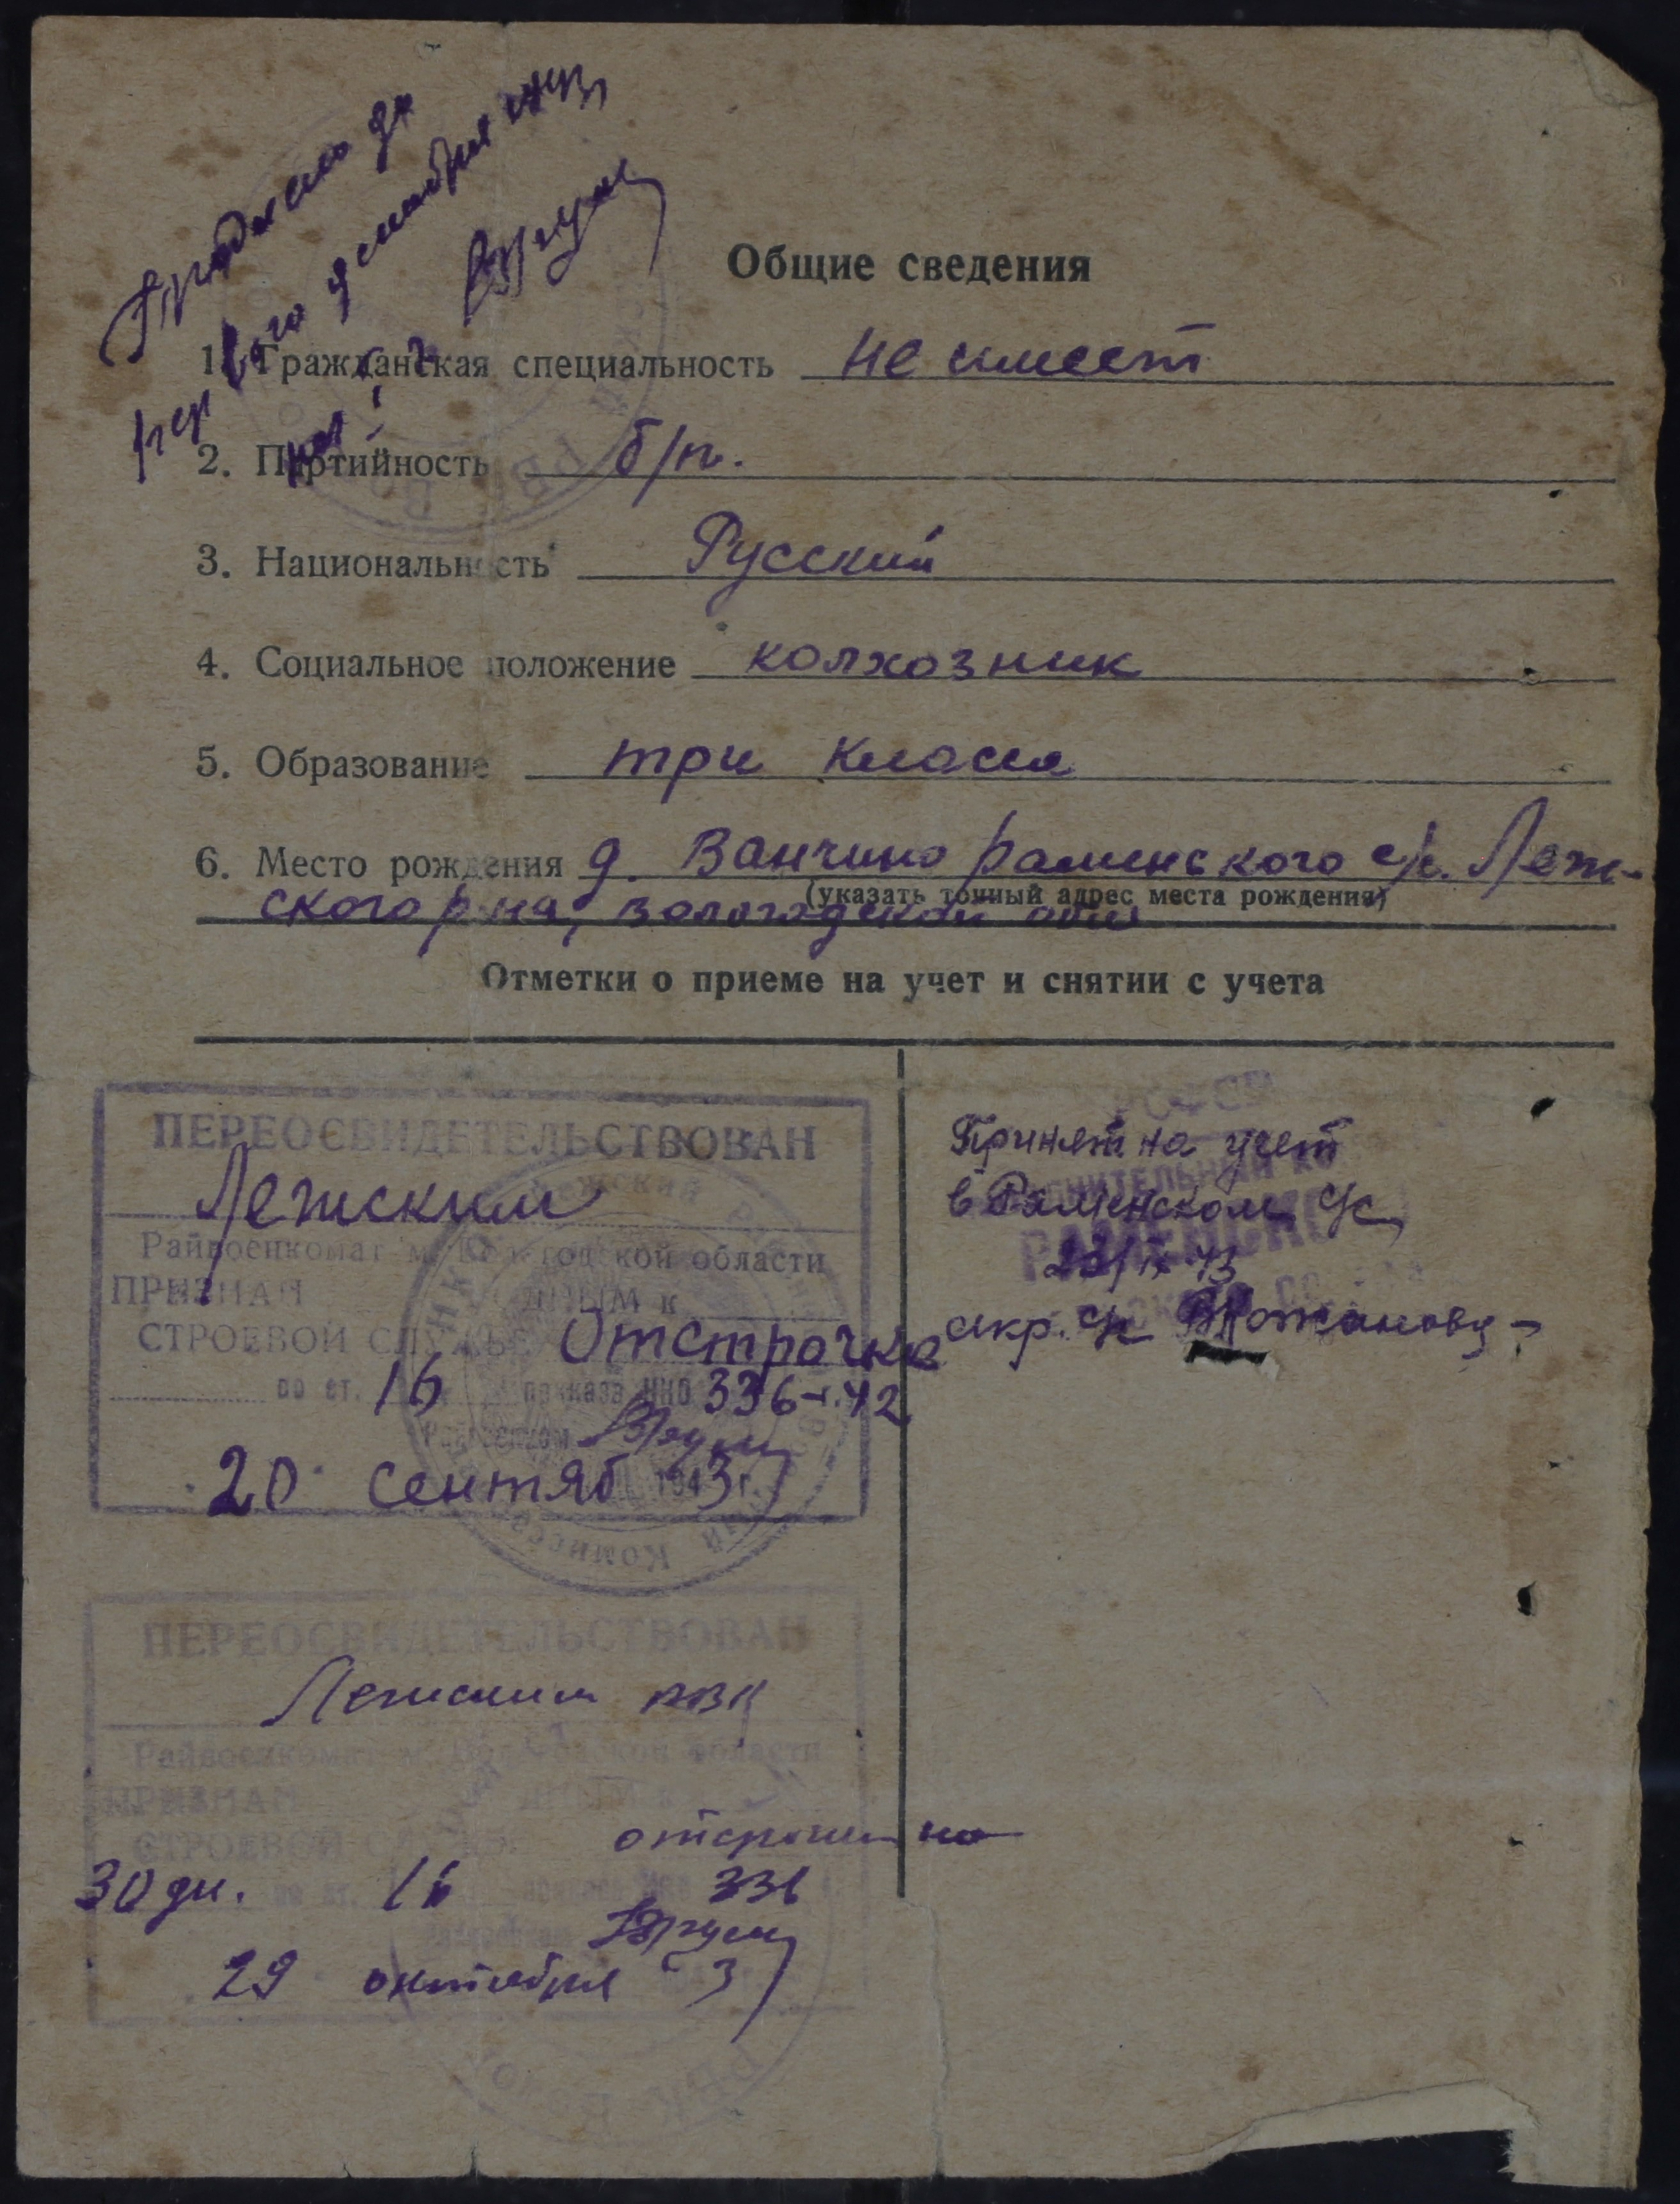 первого
Общие сведения
1. Гражданская специальность не имеет
2. Партийность б/п.
3. Национальность Русский
4. Социальное положение колхозник
5. Образование три класса
6. Место рождения д. Ванчино раменского с/с. Леж-
(указать точный адрес места рождения)
ского р-на, вологодской обл
Отметки о приеме на учет и снятии с учета
ПЕРЕОСВИДЕТЕЛЬСТВОВАН
Лежским
Райвоенкомат м. Вологодской области
ПРИЗНАН ДНЫМ к
СТРОЕВОЙ СЛУЖБЕ Отстрочка
по ст. 16 приказа НКО 336-42
Райвоенком
20 сентяб 1943 г.
Принят на учет
в Раменском с/с
43
секр. с/с
ПЕРЕОСВИДЕТЕЛЬСТВОВАН
Лежским РВК
Райвоенкомат м. Вологодской области
ПРИЗНАН ДНЫМ к
СТРОЕВОЙ
30 дн. по ст. 16 336
29 октября 3